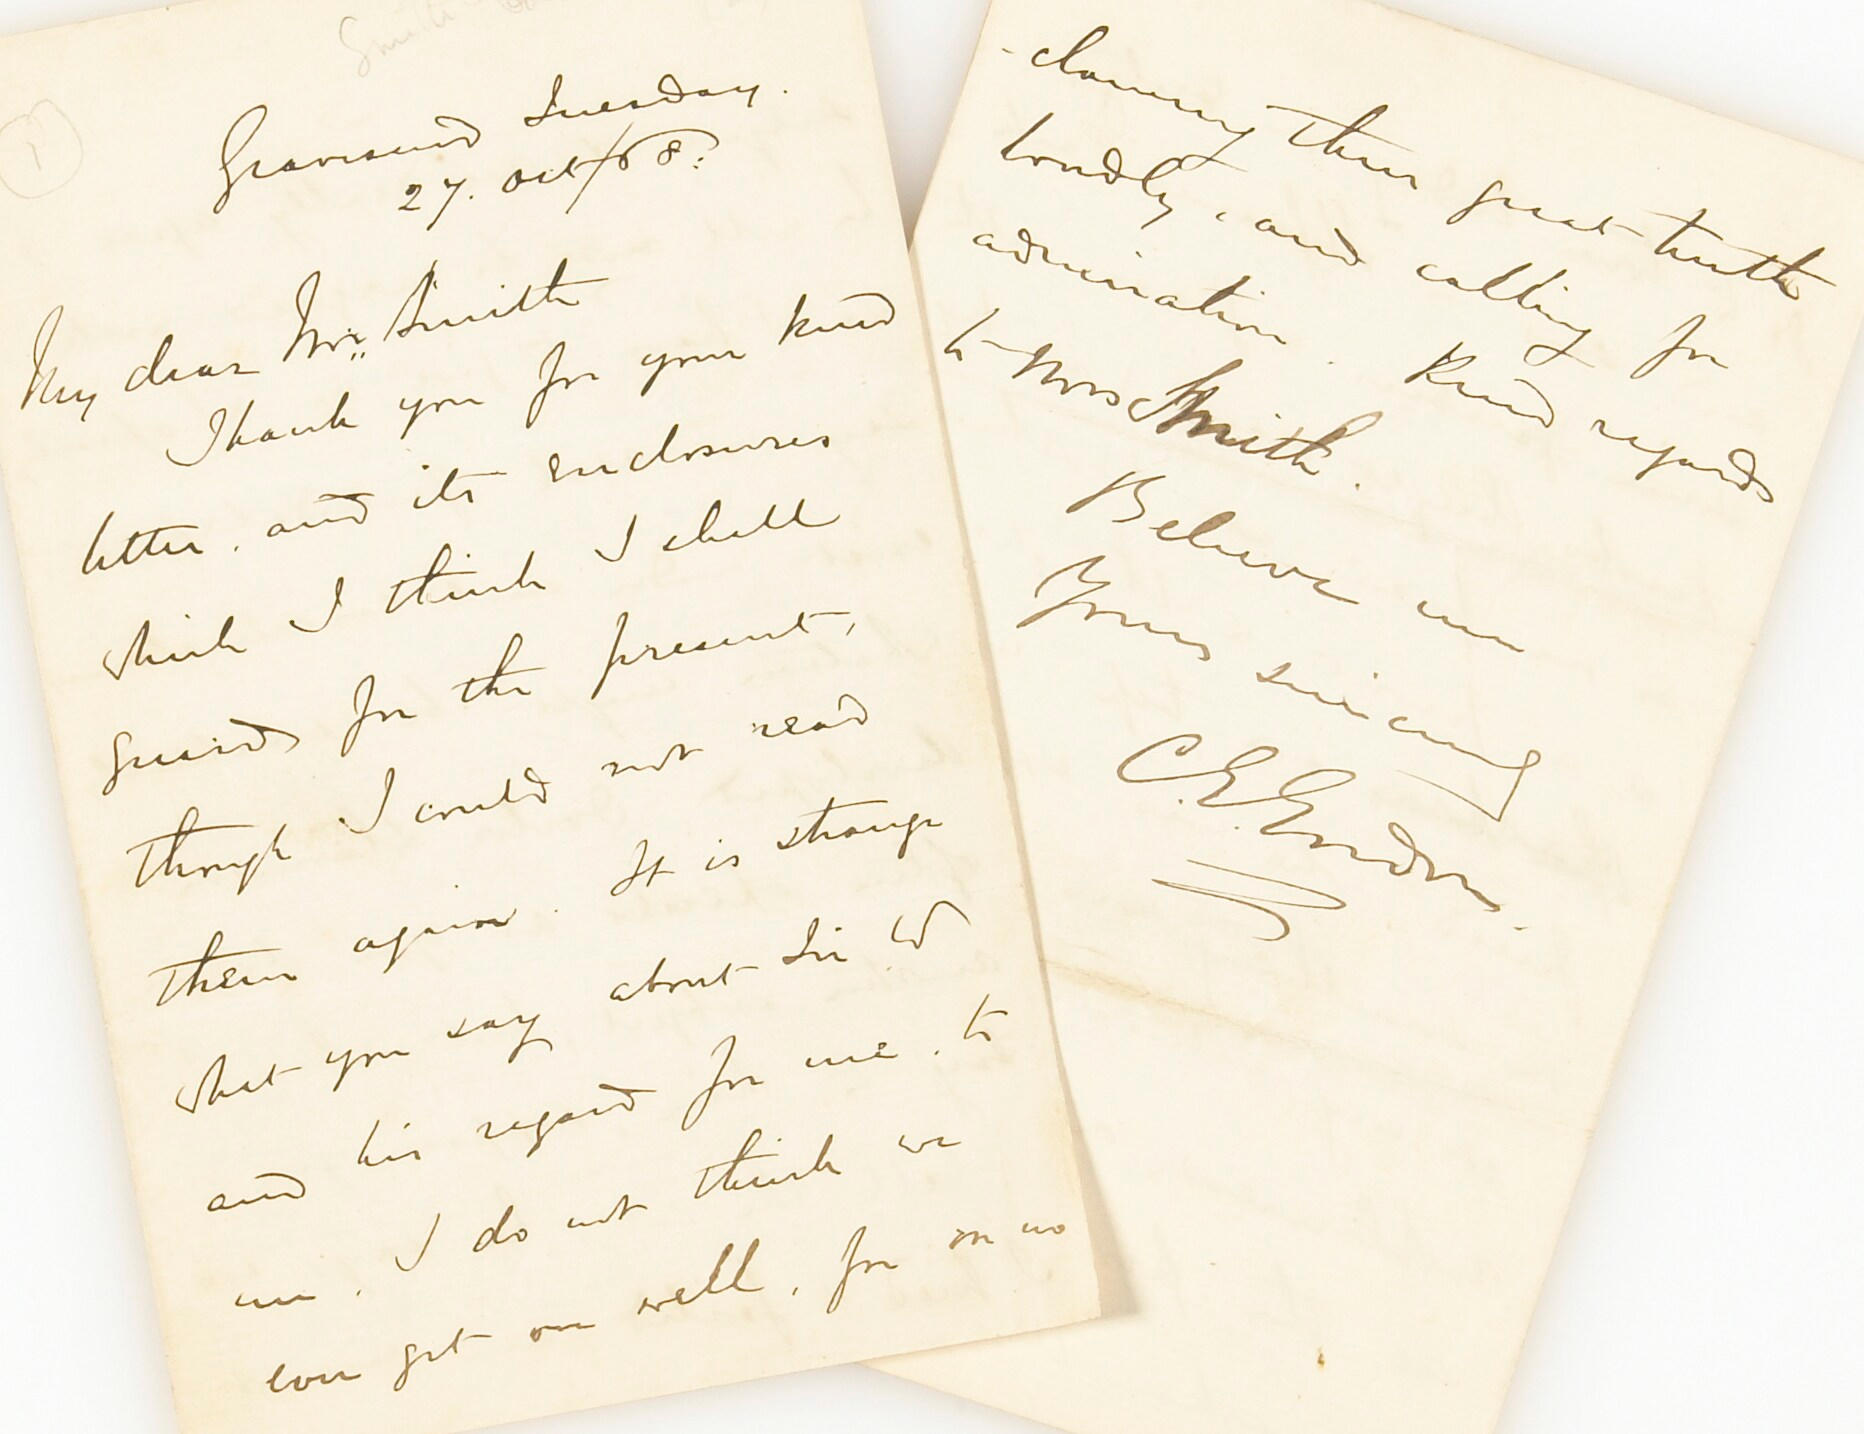 Gravesend Tuesday.
27. Oct/68.
My dear Mr. Smith
Thank you for your kind
letter, and its enclosures
which I think I shall
guard for the present,
though I could not read
them again. It is strange
what you say about Sir W
and his regard for me, to
me, I do not think we
ever get on well, for on no
-claiming their great truth
loudly, and calling for
admiration. Kind regards
to Mrs Smith.
Believe me
Yours sincerely
C.E. Gordon.
Smith
1